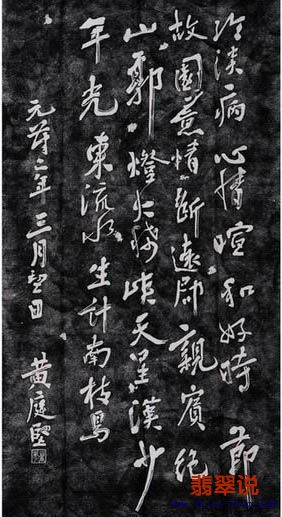 冷淡病心情暄和好時節
故園情斷遠郡親賓絕
山郭燈火稀峽天星漢少
年光東流水生計南枝鳥
元符二年三月望日
黃庭堅
翡翠说